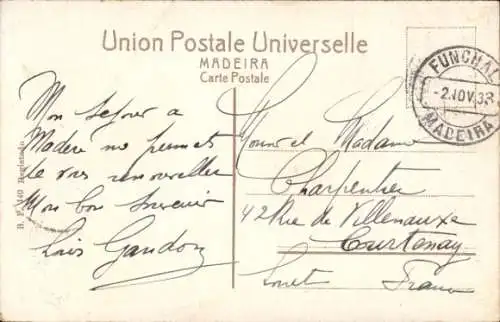 Union Postale Universelle
MADEIRA
Carte Postale
FUNCHAL
-2.NOV.33
MADEIRA
Mon sejour a
Madère me permet
de vous renouveller
Mon bon souvenir
Gandon
B. P. 140 Registado
Monsr et Madame
Charpentier
42 Rue de Villenauxe
Courtenay
Loiret France